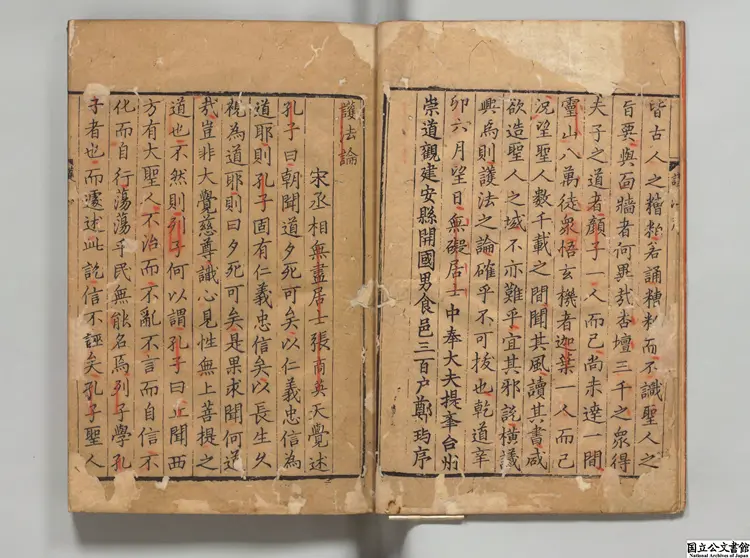 皆古人之糟粕若誦糟粕而不識聖人之
旨要與面牆者何異哉杏壇三千之衆得
夫子之道者顔子一人而已尚未達一間
靈山八萬徒衆悟玄機者迦葉一人而已
況望聖人數千載之間聞其風讀其書咸
欲造聖人之域不亦難乎宜其邪説橫議
興焉則護法之論確乎不可拔也乾道辛
卯六月望日無礙居士中奉大夫提舉台州
崇道觀建安縣開國男食邑三百户鄭璵序
護法論
宋丞相無盡居士張商英天覺述
孔子曰朝聞道夕死可矣以仁義忠信為
道耶則孔子固有仁義忠信矣以長生久
視為道耶則曰夕死可矣是果求聞何道
哉豈非大覺慈尊識心見性無上菩提之
道也不然則列子何以謂孔子曰丘聞西
方有大聖人不治而不亂不言而自信不
化而自行蕩蕩乎民無能名焉列子學孔
子者也而遽述此説信不誣矣孔子聖人
国立公文書館
National Archives of Japan